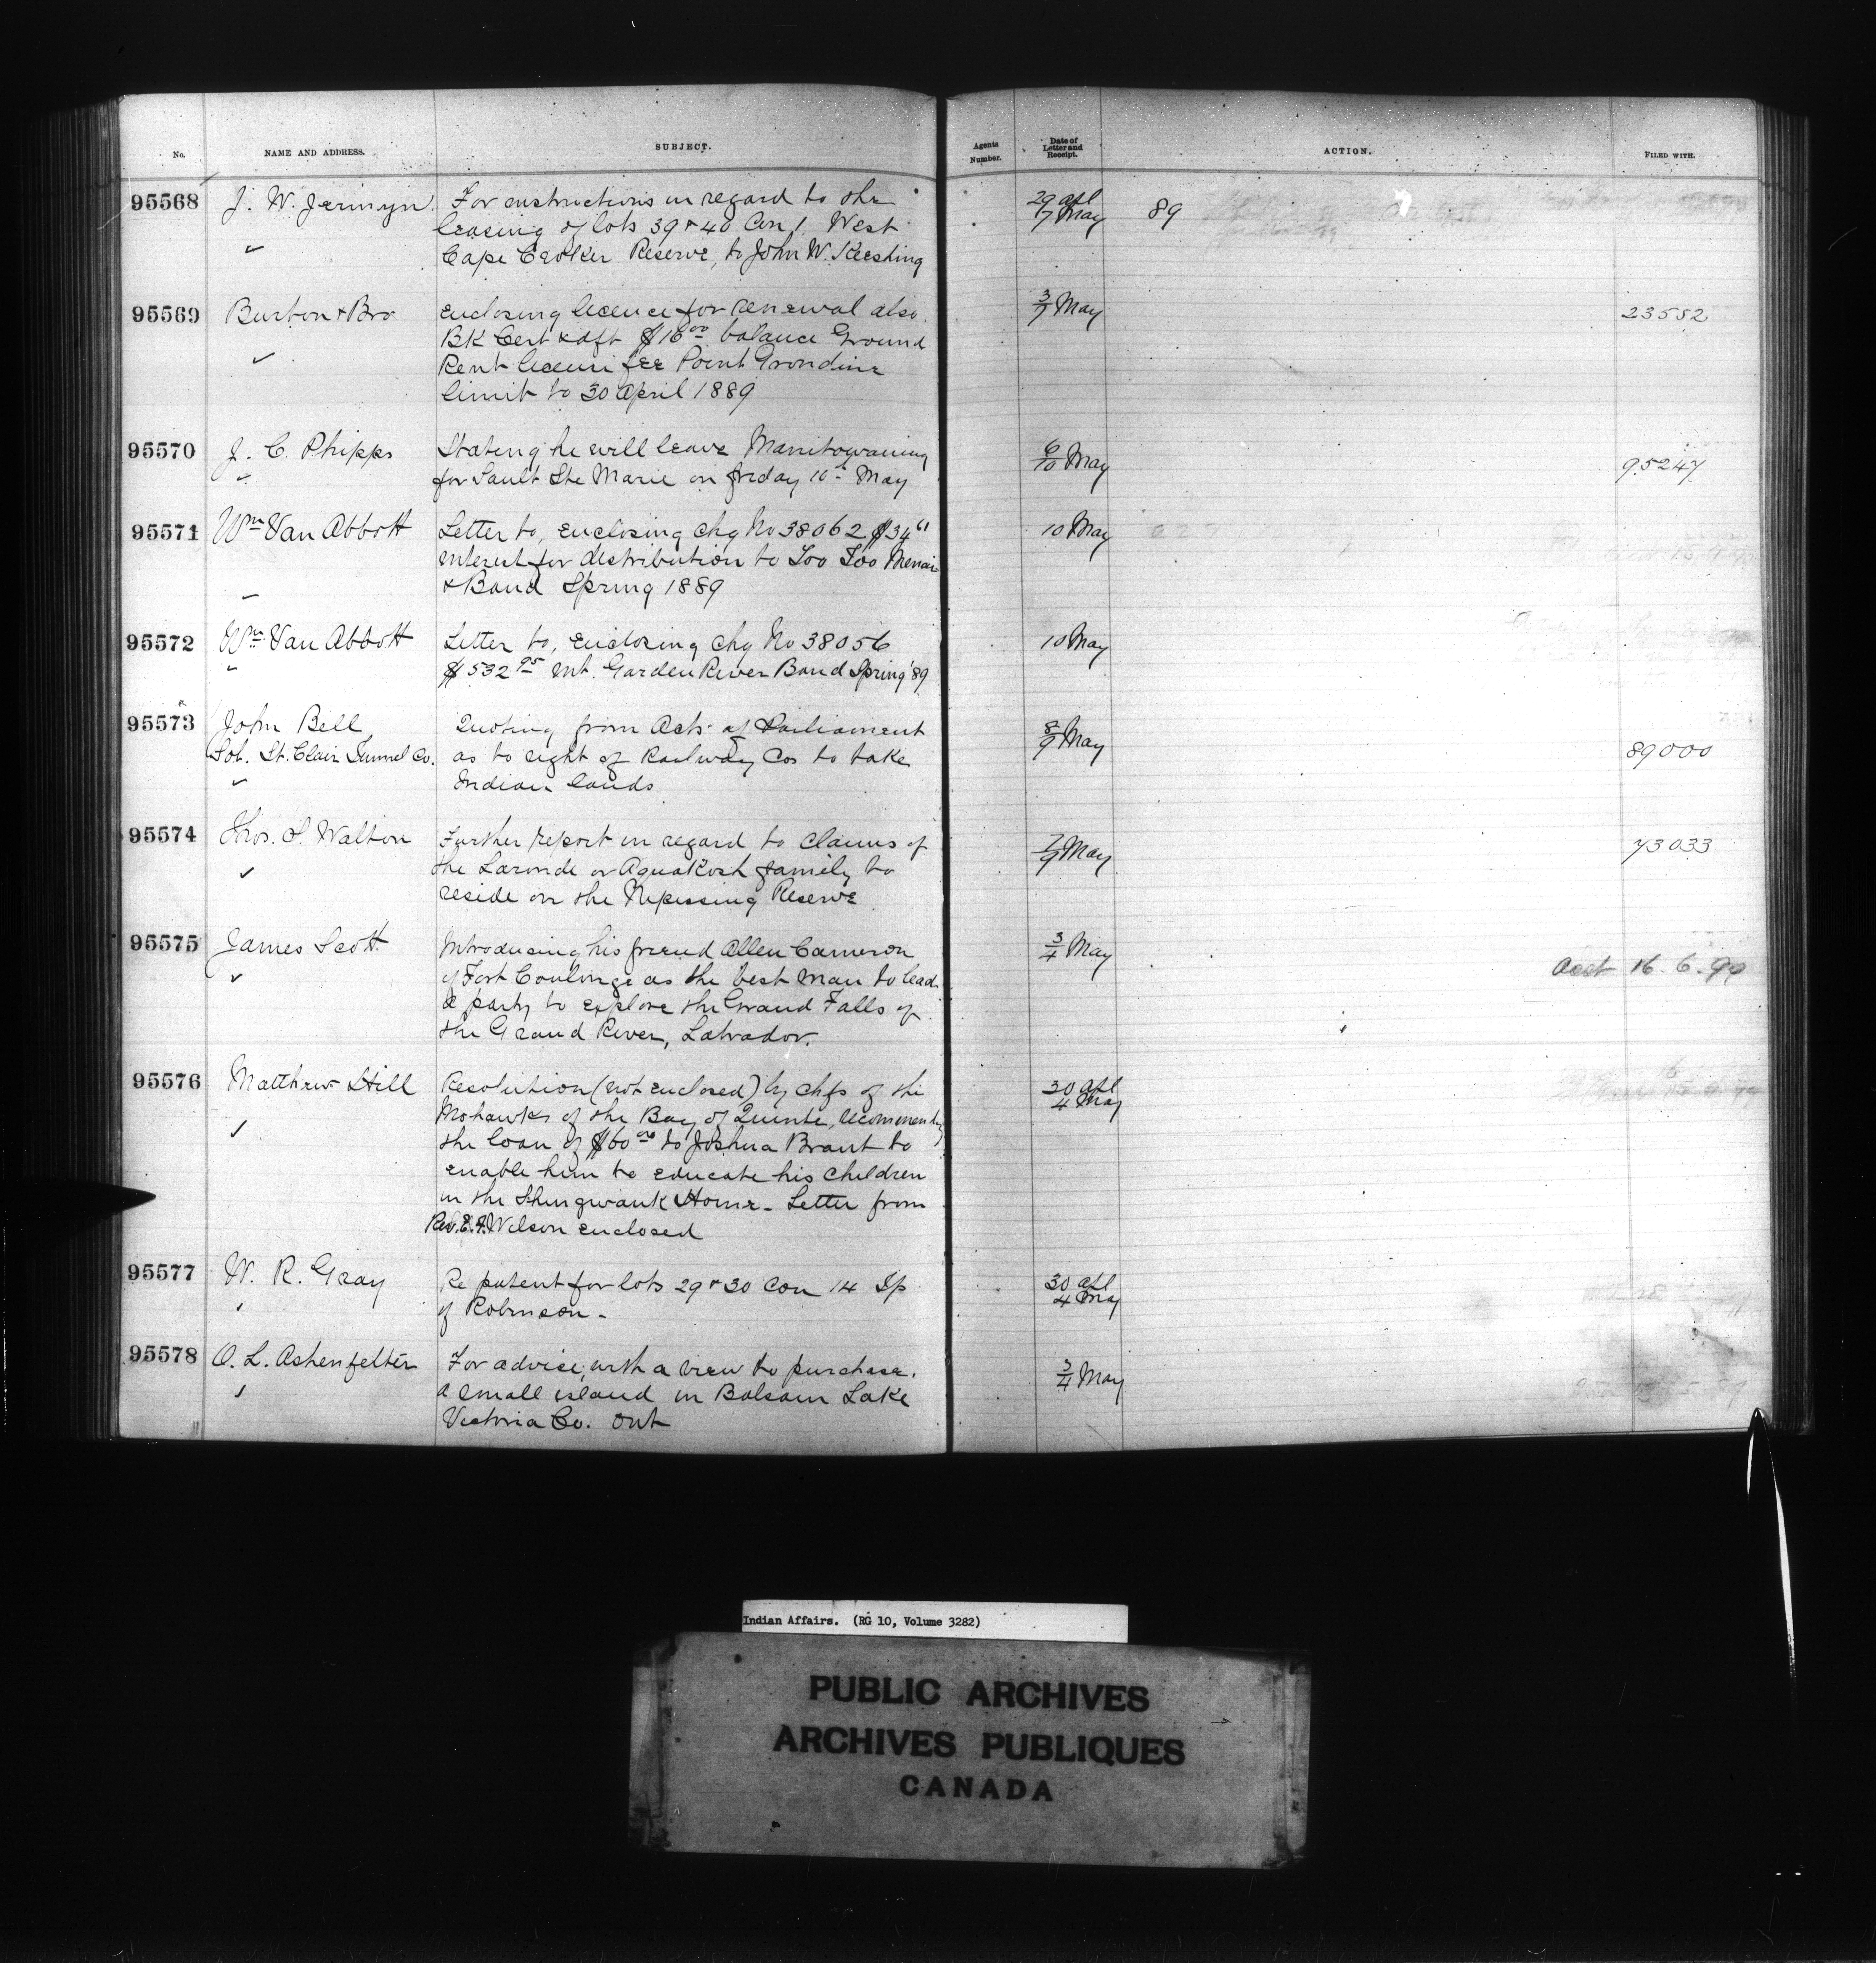 No. NAME AND ADDRESS. SUBJECT. Agents Number. Date of Letter and Receipt. ACTION. FILED WITH.
95568 J. W. Jermyn For instructions in regard to the 29 apl 89
leasing of lots 39 & 40 Con 1. West 7 May
Cape Croker Reserve, to John W. Keeshing
95569 Burton & Bro Enclosing licence for renewal also 3/7 May 23552
BK Cert & dft $16 00 balance Ground
Rent licence fee Point Grondine
limit to 30 April 1889
95570 J. C. Phipps Stating he will leave Manitowaning 6/10 May 95247
for Sault Ste Marie on friday 10th May
95571 Wm Van Abbott Letter to, enclosing chq No 38062 $34 61 10 May
interest for distribution to Too Too Menai
& Band Spring 1889
95572 Wm Van Abbott Letter to, enclosing chq No 38056 10 May
$532 95 int. Garden River Band Spring '89
95573 John Bell Quoting from Acts of Parliament 8/9 May
Sol. St. Clair Tunnel Co. as to right of Railway Cos to take 89000
Indian lands
95574 Thos. S. Walton Further report in regard to claims of 7/9 May 73033
the Laronde or Aguakosh family to
reside on the Nipissing Reserve
95575 James Scott Introducing his friend Allen Cameron 3/4 May
of Fort Coulonge as the best man to lead Acct 16.6.90
a party to explore the Grand Falls of
the Grand River, Labrador.
95576 Matthew Hill Resolution (not enclosed) by chfs of the 30 apl
Mohawks of the Bay of Quinte, recommendg 4 May
the loan of $60 00 to Joshua Brant to
enable him to educate his children
in the Shingwauk Home - Letter from
Rev. E. F. Wilson enclosed
95577 W. R. Gray Re patent for lots 29 & 30 Con 14 Tp 30 apl
of Robinson - 4 May
95578 O. L. Ashenfelter For advice, with a view to purchase. 3/4 May
a small island in Balsam Lake
Victoria Co. Ont
Indian Affairs. (RG 10, Volume 3282)
PUBLIC ARCHIVES
ARCHIVES PUBLIQUES
CANADA